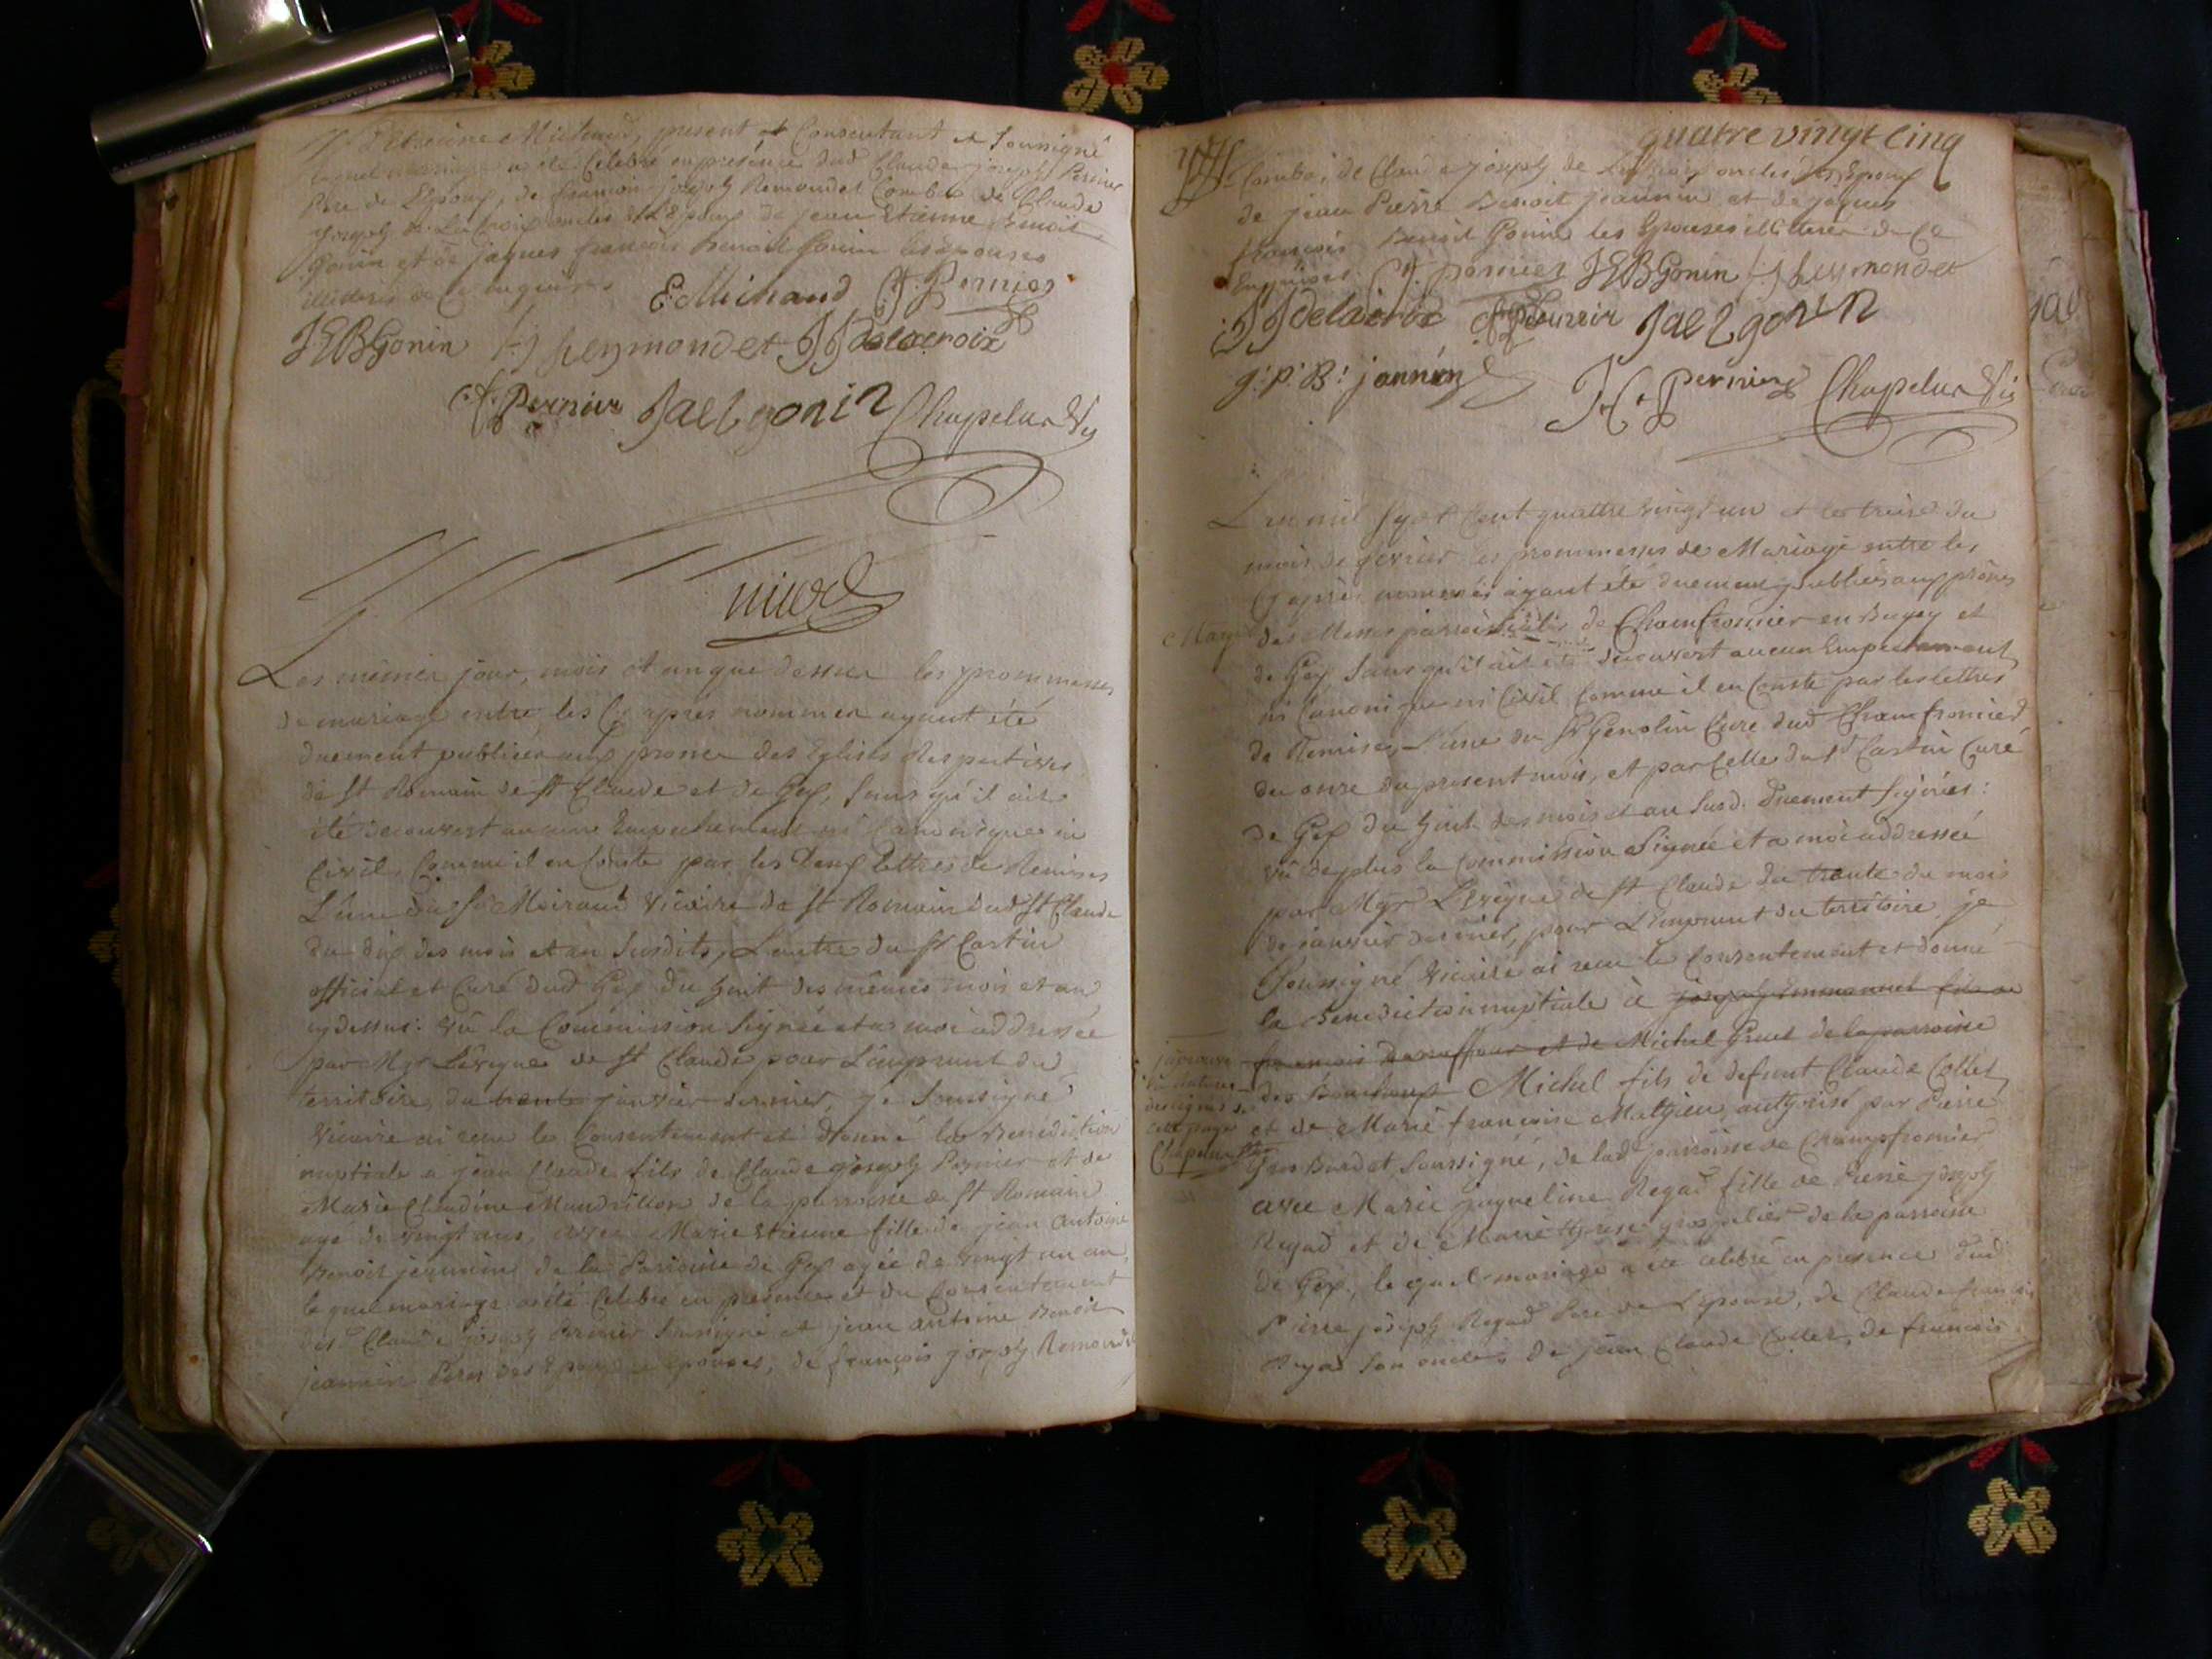 Etienne Michaud, present et Consentant et Soussigné
lequel mariage a été Celebré en presence dud Claude joseph Pernier
Pere de L'Epoux, de francois joseph Remondet Combe de Claude
joseph De Lacroix oncles de L'Epoux de jean Etienne Benoit
Gonin et de jaques francois Benoit Gonin les epouses
illitérées de ce enquises
E. Michaud C.J. Pernier
JEBGonin f. j Reymondet JJ Delacroix
Pernier Jaelgonin Chapelu Vic
Les mêmes jour, mois et an que dessus les prommesses
de mariage entre les Cy après nommés ayant été
duement publiées aux prones des Eglises Respectives
de St Romain de St Claude et de Gex, sans qu'il ait
été decouvert aucune Empechement ni Canonique ni
Civil, Comme il en Conste par les Deux lettres de Remises
L'une du Sr Moiraud Vicaire de St Romain dud St Claude
du dix des mois et an Susdits, L'autre du Sr Castin
official et Curé dud Gex du huit des mêmes mois et an
cy dessus: vû la Commission Signée et a moi addressée
par Mgr L'évêque de St Claude pour L'emprunt du
territoire du trente janvier dernier, je Soussigné
Vicaire ai recu le Consentement et donné la Benediction
nuptiale a jean Claude fils de Claude joseph Pernier et de
Marie Claudine Maudrillon de la parroisse de St Romain
agé de vingt ans, avec Marie Etienne fille de jean Antoine
Benoit jeannin de la Parroisse de Gex agée de vingt un an,
lequel mariage a été Celebré en presence et du Consentement
des Claude joseph Pernier soussigné et jean antoine Benoit
jeannin Peres des Epoux et epouses, de françois joseph Remondet
quatre vingt cinq
Combe, de Claude joseph de Lacroix oncles de l'Epoux
de jean Pierre Benoit jeannin et de jaques
francois Benoit Gonin les Epouses illitérées de ce
Enquises C.J. pernier JEBGonin f. j Reymondet
JJ delacroix Pernier Jaelgonin
j: p: B: jannin Pernier Chapelu Vic
L'an mil sept Cent quattre vingt un et le treise du
mois de fevrier les prommesses de Mariage entre les
Cy après nommés ayant été duement publiées aux prônes
des Messes parroissiales de Chamfromier en Bugey et
de Gex sans qu'il ait été decouvert aucun Empechement
ni Canonique ni Civil Comme il en Conste par les lettres
de Remise, L'une du Sr Genolin Cure dud Chamfromier
du onze du present mois, et par Celle du Sr Castin Curé
de Gex du huit des mois et an Susd. Duement Signées:
vû de plus la Commission Signée et a moi addressée
par Mgr L'evêque de St Claude du trente du mois
de janvier dernier, pour L'Emprunt du territoire, je
Soussigné Vicaire ai recu le Consentement et donné
la Benediction nuptiale à joseph Emmanuel fils de
francois Danuffour et de Michel Gruet de la parroisse
des Bouchoux Michel fils de defunt Claude Collet
et de Marie francoise Mathieu authorisé par Pierre
Bundet soussigné, de lad parroisse de Champfromier
avec Marie jaqueline Regad fille de Pierre joseph
Regad et de Marie therese Grospelier de la parroisse
de Gex, le quel mariage a été celebré en presence dud
Pierre joseph Regad Pere de L'epouse, de Claude francois
Regad son oncle, de jean Claude Collet, de francois
japrouve
des lignes de
cette page
Chapelu